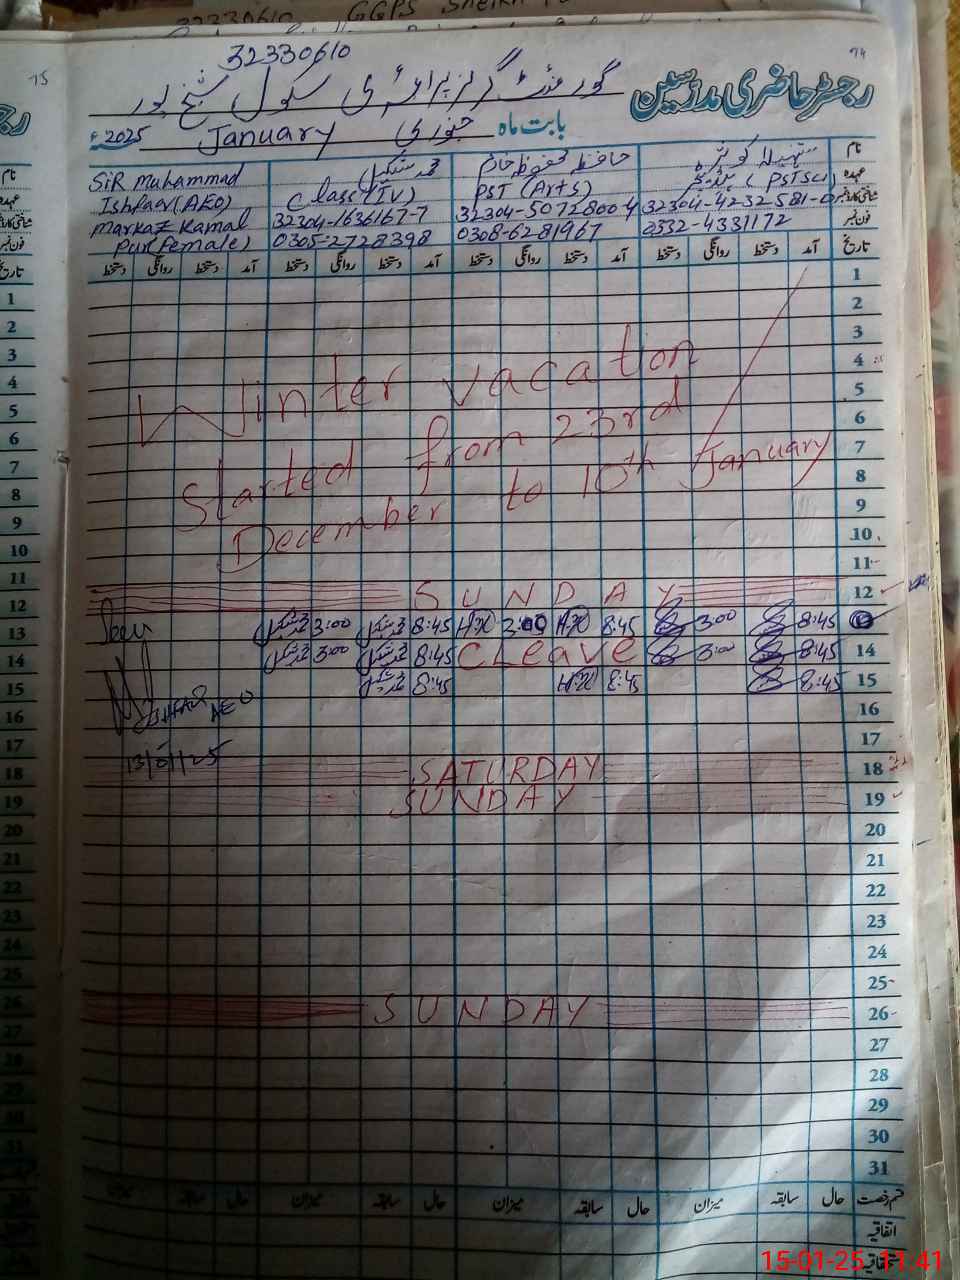 32330610 GGPS Sheikh
75
74
32330610
رجسٹر حاضری مدرسین
گورنمنٹ گرلز پرائمری سکول شیخ پور
بابت ماہ جنوری January 2025ء
نام
عہدہ
فون نمبر
تاریخ
SIR Muhammad
Ishfaq (AEO)
Markaz Kamal
Pur (female)
محمد شکیل
Class (IV)
32304-1636167-7
0305-2728398
حافظہ محفوظ خانم
PST (Arts)
32304-5072800-4
0308-6281967
کوثر
(PSTSci)
32304-4232581-0
0332-4331172
آمد دستخط روانگی دستخط آمد دستخط روانگی دستخط آمد دستخط روانگی دستخط آمد دستخط روانگی دستخط
1
2
3
4
5
6
7
8
9
10
11
Winter vacation
Started from 23rd
December to 10th January
12 SUNDAY
13 8:45 3:00 8:45 HM 3:00 HM 8:45 محمد شکیل 3:00 محمد شکیل
14 8:45 3:00 C Leave 8:45 محمد شکیل 3:00 محمد شکیل
15 8:45 8:45 HM 8:45 محمد شکیل
AEO
13/01/25
16
17
18 SATURDAY
19 SUNDAY
20
21
22
23
24
25
26 SUNDAY
27
28
29
30
31
قسم رخصت حال سابقہ میزان حال سابقہ میزان حال سابقہ میزان حال سابقہ میزان
اتفاقیہ
15-01-25 11:41